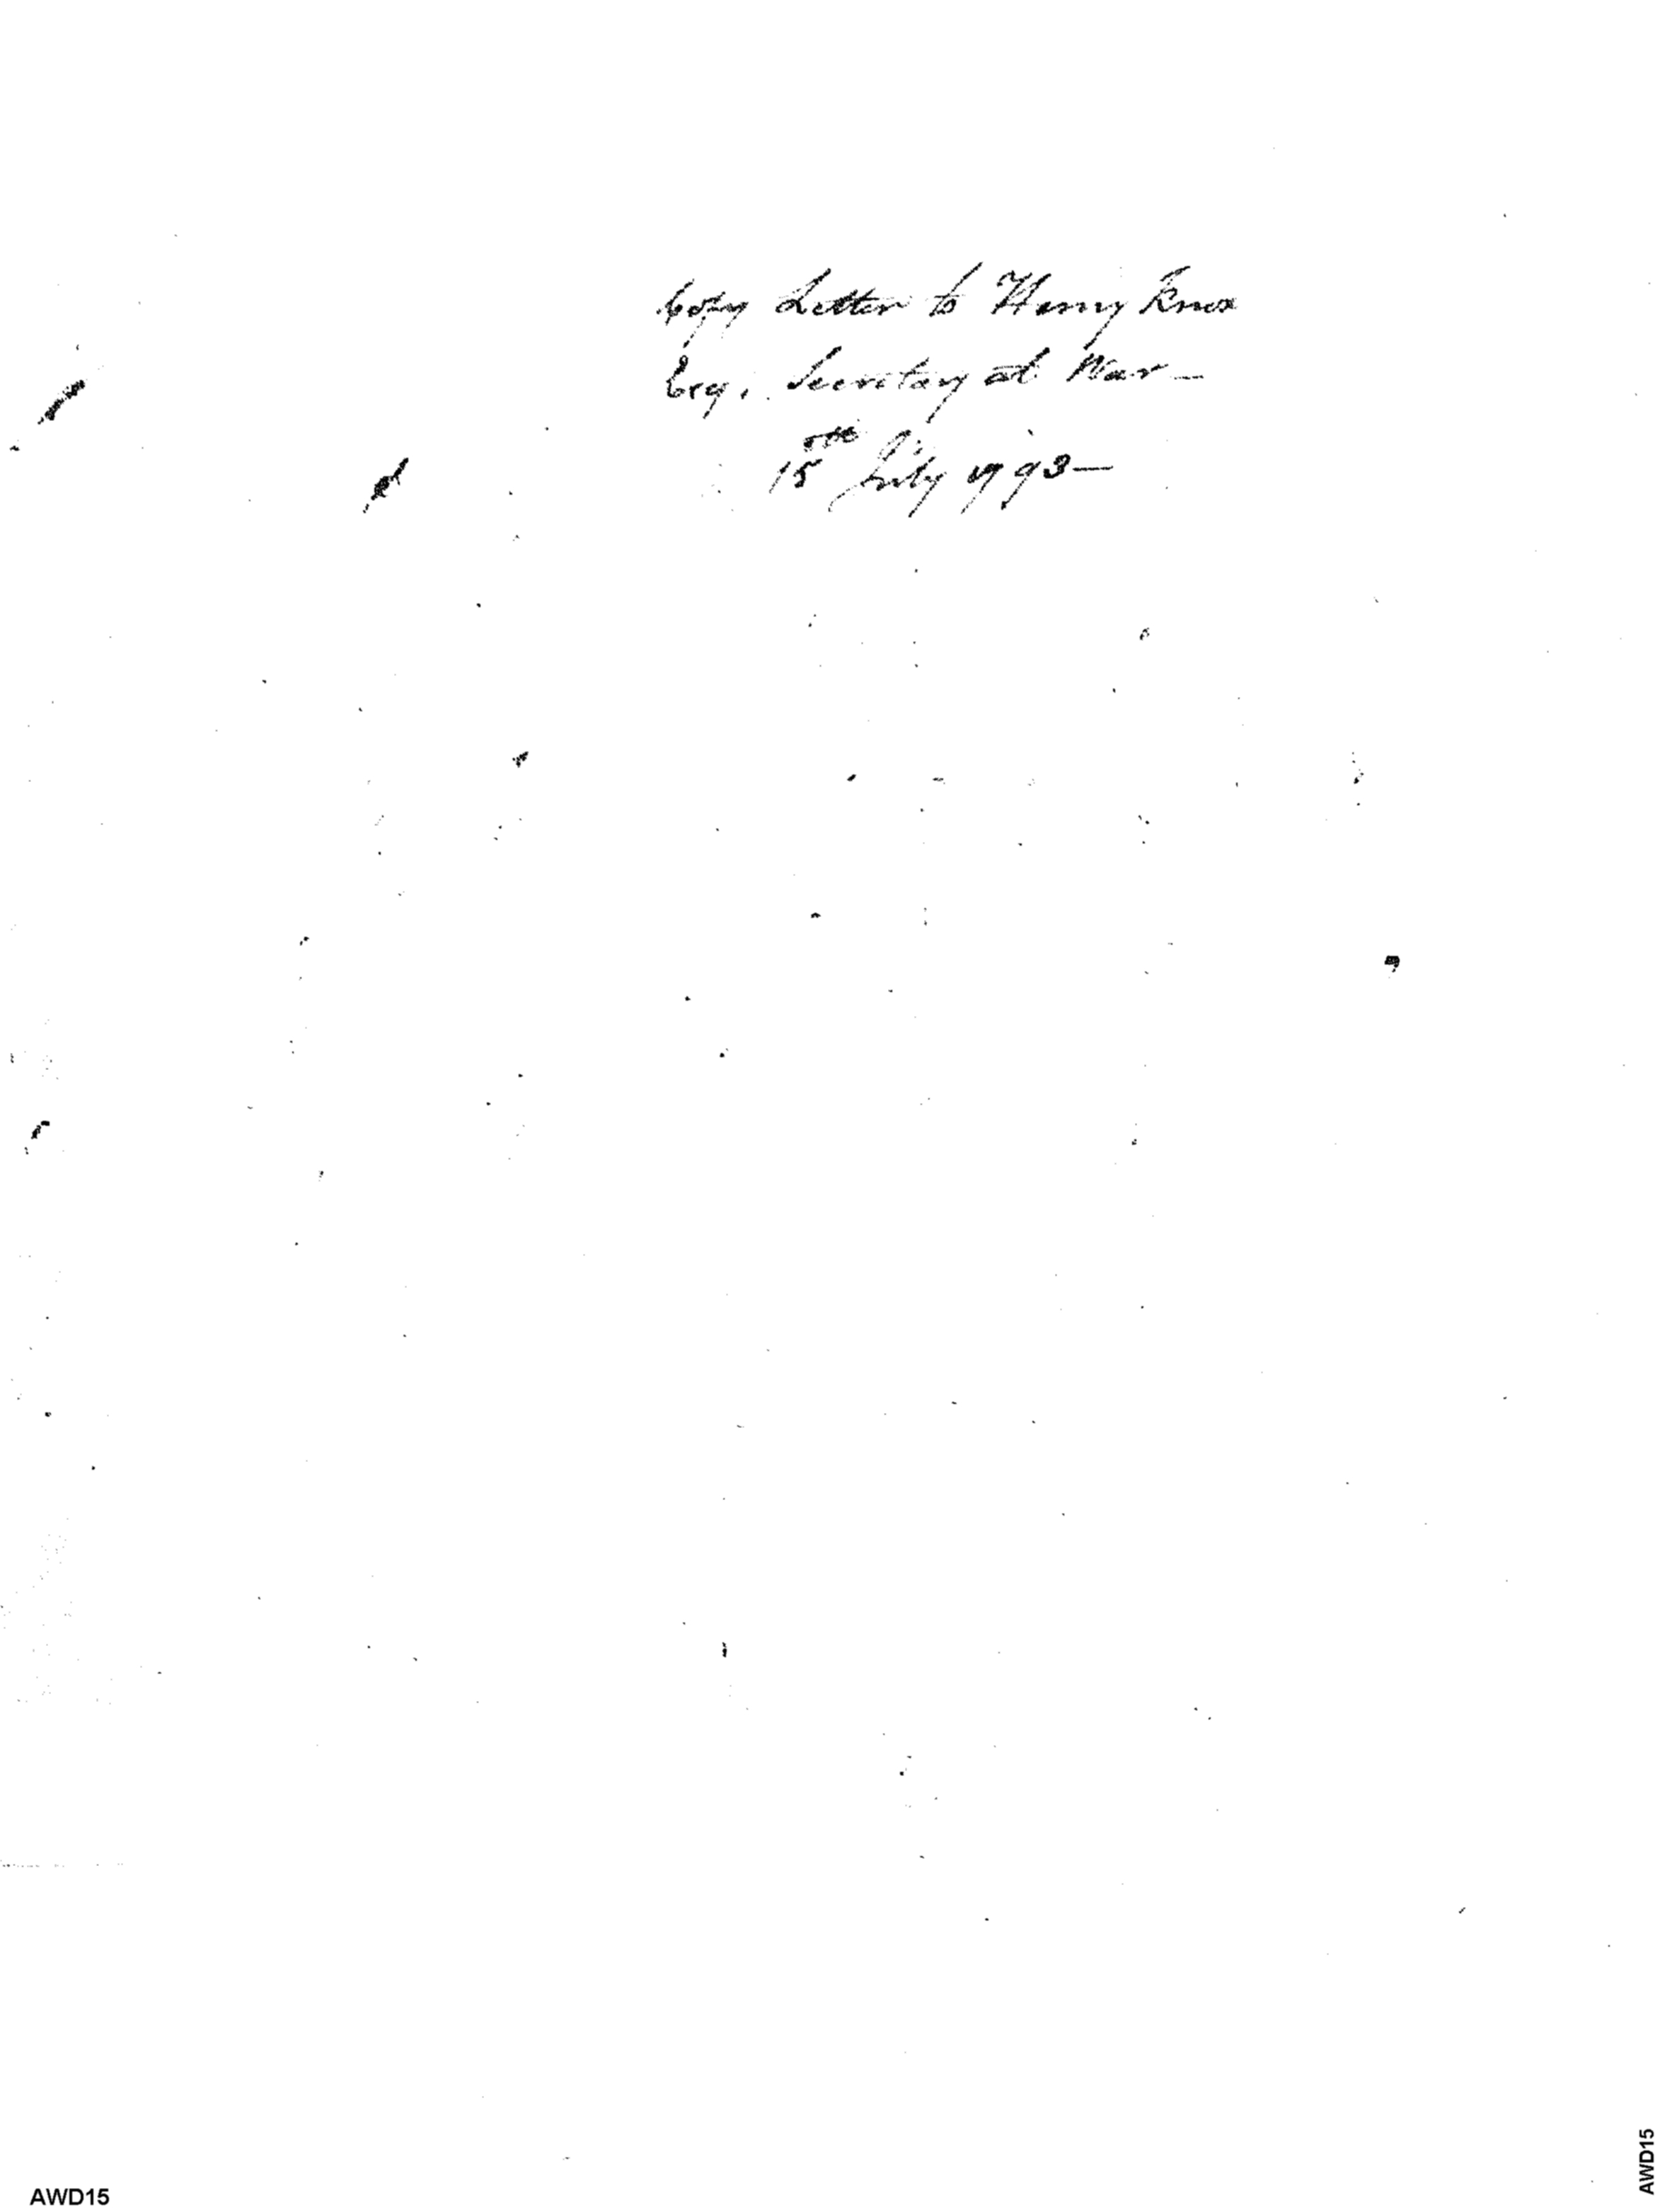 Copy Letter to Henry Knox
Esq. Secretary at War —
15th July 1793 —
AWD15
AWD15